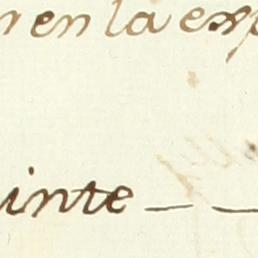 en la exp
inte — —